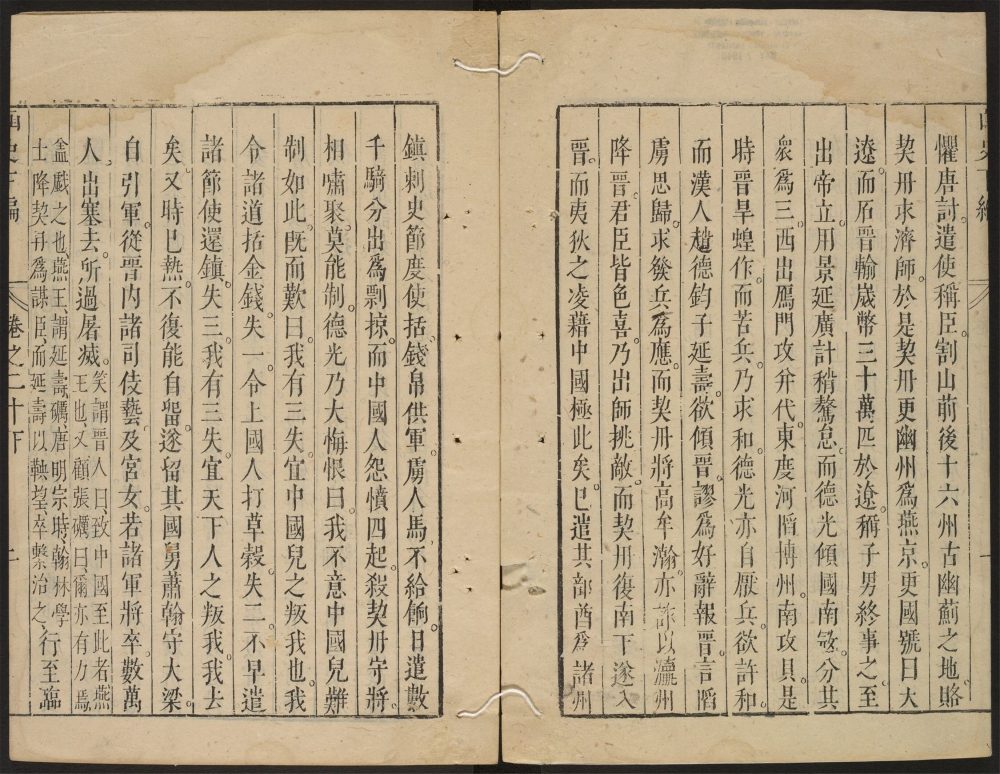 懼唐討遣使稱臣割山前後十六州古幽薊之地賂
契丹求濟師於是契丹更幽州爲燕京更國號曰大
遼而石晉輸歲幣三十萬匹於遼稱子男終事之至
出帝立用景延廣計稍驁怠而德光傾國南寇分其
衆爲三西出鴈門攻并代東度河㨶博州南攻貝是
時晉旱蝗作而苦兵乃求和德光亦自厭兵欲許和
而漢人趙德鈞子延壽欲傾晉謬爲好辭報晉言㨶
虜思歸求發兵爲應而契丹將高牟瀚亦詐以瀛州
降晉君臣皆色喜乃出師挑敵而契丹復南下遂入
晉而夷狄之凌藉中國極此矣已遣其部酋爲諸州
鎮刺史節度使括錢帛供軍虜人馬不給餉日遣數
千騎分出爲剽掠而中國人怨憤四起殺契丹守將
相嘯聚莫能制德光乃大悔恨曰我不意中國兒難
制如此旣而歎曰我有三失宜中國兒之叛我也我
令諸道括金錢失一令上國人打草穀失二不早遣
諸節使還鎮失三我有三失宜天下人之叛我我去
矣又時已熱不復能自留遂留其國舅蕭翰守大梁
自引軍從晉內諸司伎藝及宮女若諸軍將卒數萬
人出塞去所過屠滅笑謂晉人曰致中國至此者燕
王也又顧張礪曰爾亦有力焉
盍戲之也燕王謂延壽礪唐明宗時翰林學
士降契丹爲謀臣而延壽以鞅望卒繫治之行至臨
史下編
卷之二十下